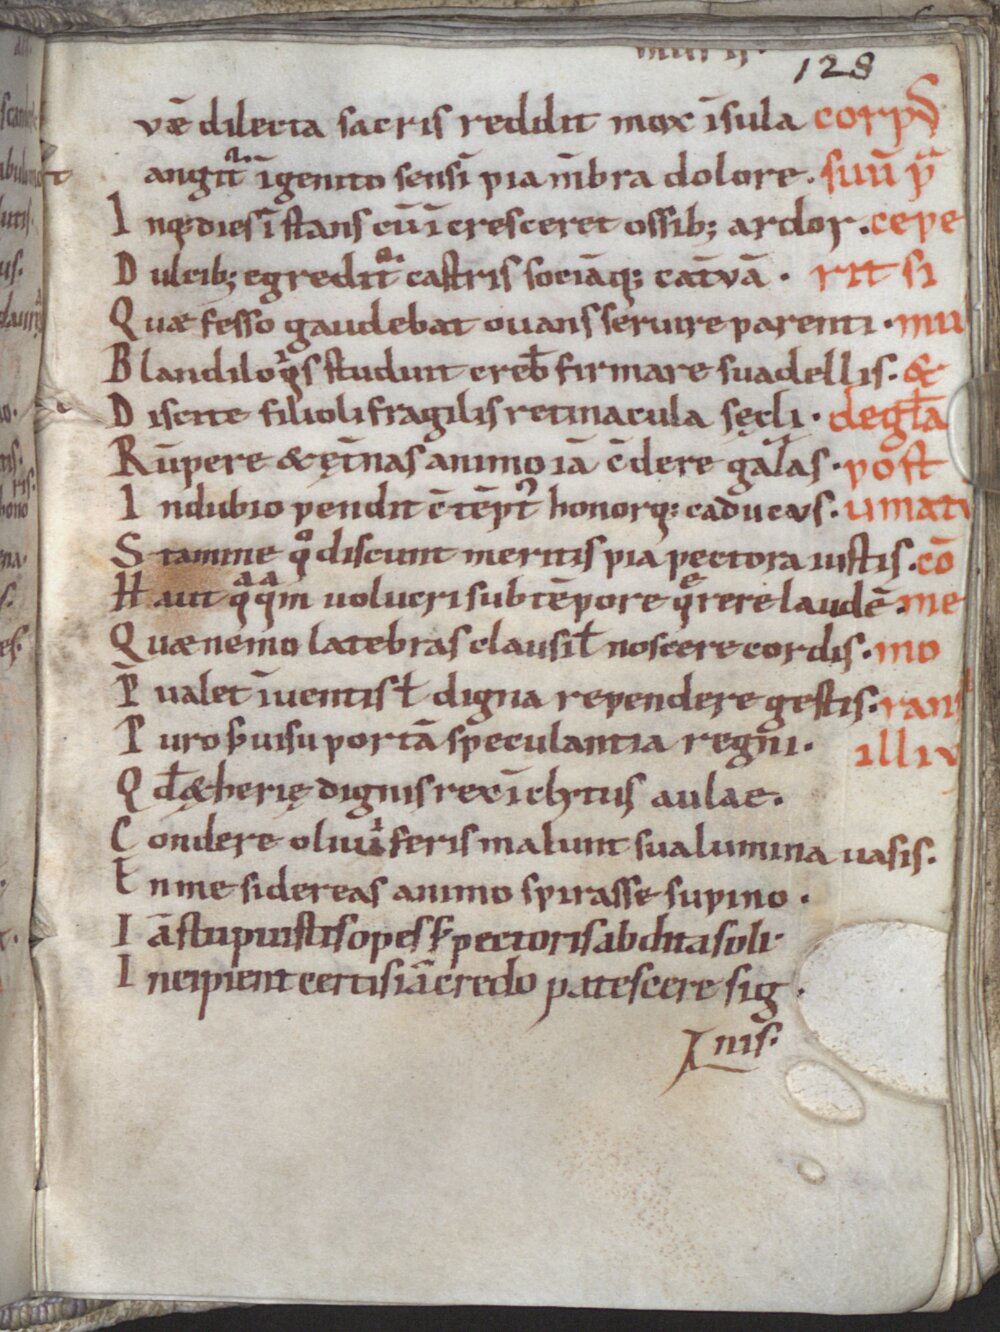 128
væ dilecta sacris reddit mox īsula corpꝰ
angit᷑ īgenito sensī pia mb̄ra dolore. suū p̄
I nq; dies īstans cū īcresceret ossib; ardor. cepe
D ulcib; egredit᷑ castris sociāq; cat̄vā. rit si
Q uæ fesso gaudebat ouans seruire parenti. mu
B landiloqͥs student creb̄ firmare suadellis. &
D iscite filioli fragilis retinacula sęcli. degła
R ūpere & ęt̄nas animo iā c̄dere gałas. post
I ndubio pendit c̄tēpt᷑ honorq; caducus. umati
S tamine qͦ discunt meritis pia pectora iustis. cō
H aut qͣqͣm uolucri sub tēpore quęrere laudē. me
Q uæ nemo latebras clausit noscere cordis. mo
P̄ ualet īuentis ł digna rependere gestis. rans
P uro uisu portā speculantia regni. illiv
Q d æ̨therię dignis rex īclitus aulae.
C ondere oliuiferis malunt sua lumina uasis.
E n me sidereas animo spirasse supino.
I ā stupuistis opes pectoris abdita soli
I ncipient certis iā credo patescere sig
nis.